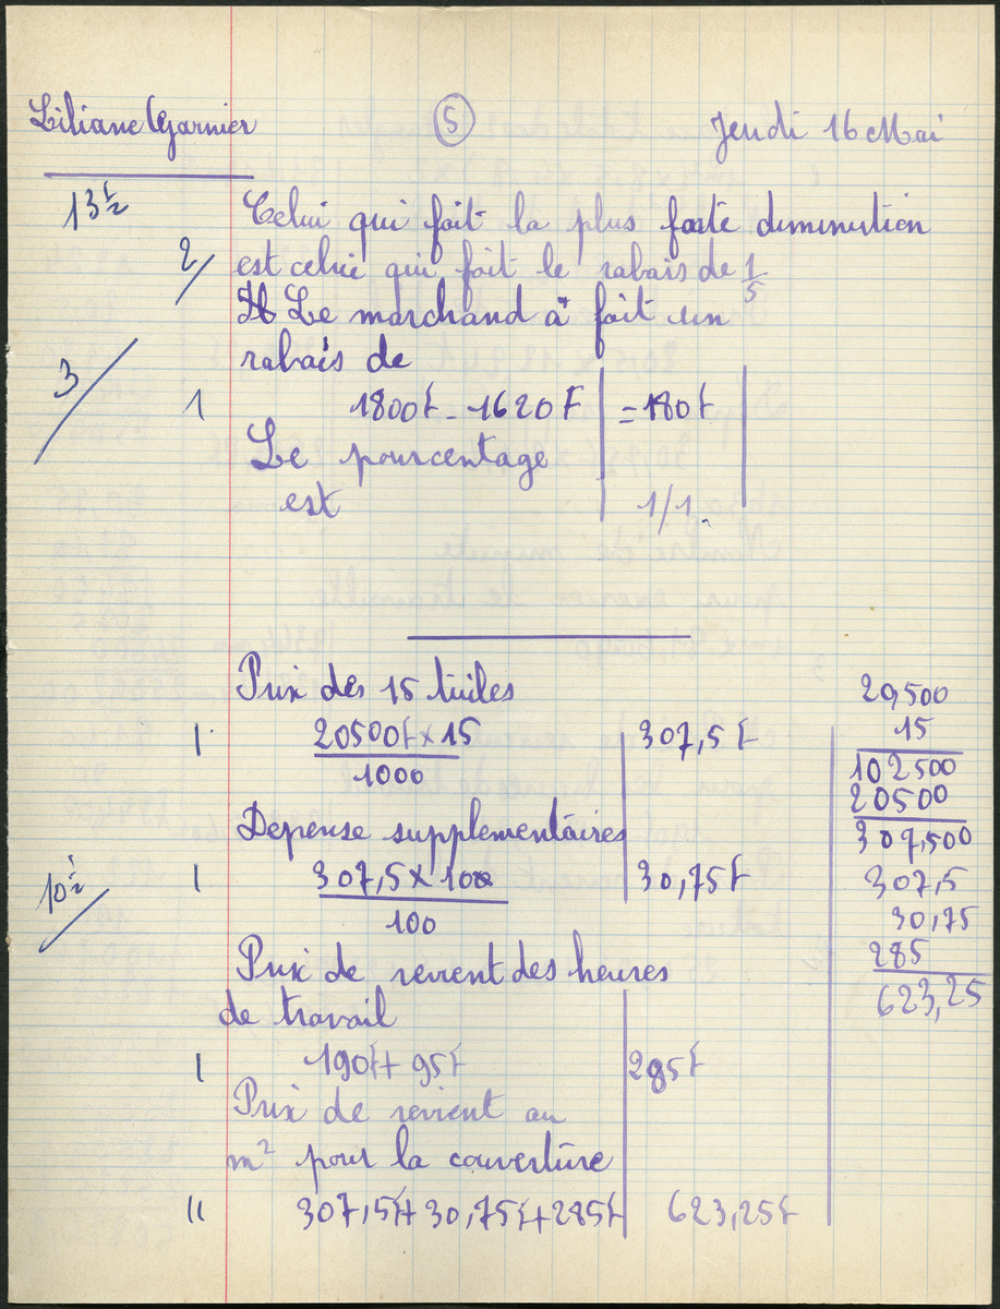 Liliane Garnier
5
Jeudi 16 Mai
13 1/2
Celui qui fait la plus forte dimunution
2/
est celui qui fait le rabais de 1/5
Le marchand a fait un
rabais de
3
1
1800f - 1620F = 180f
Le pourcentage
est 1/1.
Prix des 15 tuiles
1
20500f x 15
1000
307,5 f
Depense supplementaires
10 1/2
1
307,5 x 100
100
30,75f
Prix de revient des heures
de travail
1
190f + 95f
285f
Prix de revient au
m² pour la couverture
11
307,5f + 30,75f + 285f
623,25f
20,500
15
102500
20500
307,500
307,5
30,75
285
623,25